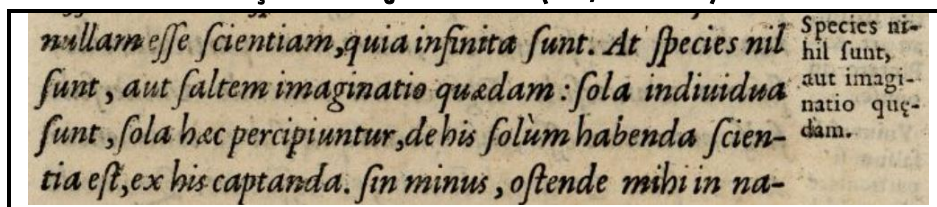 nullam eſſe ſcientiam, quia infinita ſunt. At ſpecies nil
ſunt, aut ſaltem imaginatio quædam: ſola indiuidua
ſunt, ſola hæc percipiuntur, de his ſolùm habenda ſcien-
tia eſt, ex his captanda. ſin minus, oſtende mihi in na-
Species ni-
hil ſunt,
aut imagi-
natio quę-
dam.